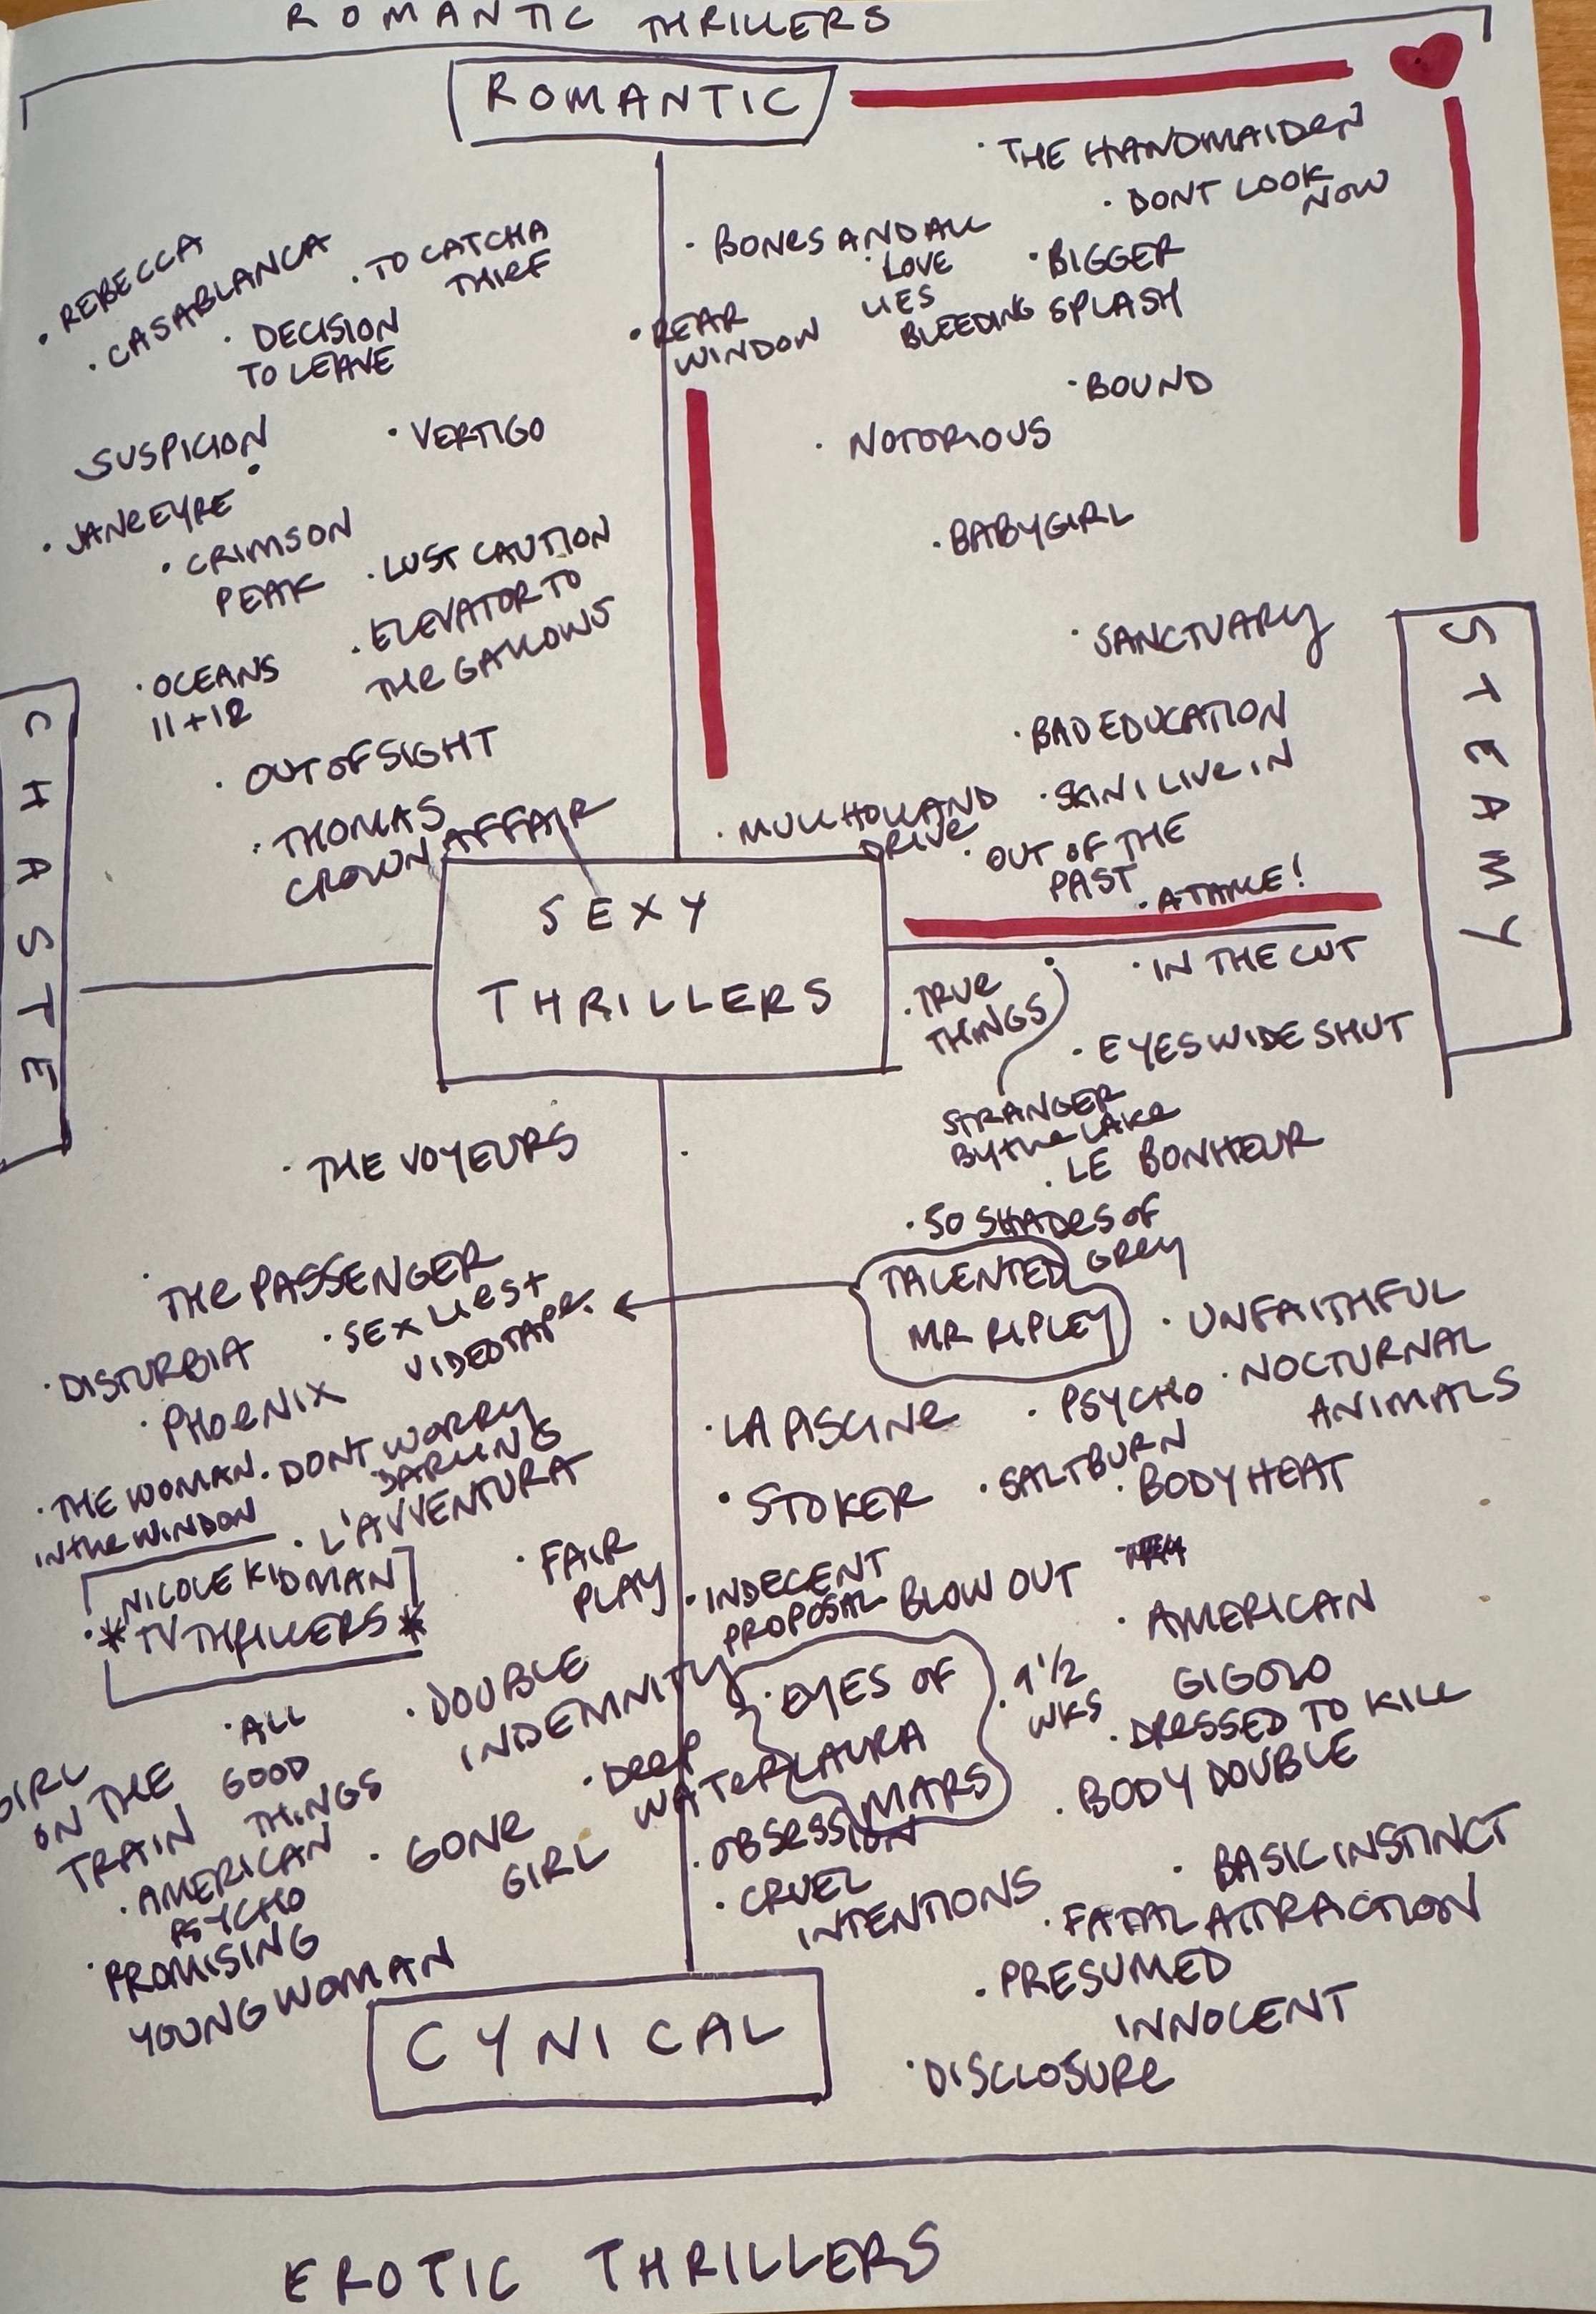 ROMANTIC THRILLERS
ROMANTIC
· THE HANDMAIDEN
· DONT LOOK
NOW
· REBECCA
· CASABLANCA
· TO CATCH A
THIEF
· DECISION
TO LEAVE
SUSPICION
· VERTIGO
· JANE EYRE
· CRIMSON
PEAK
· LUST CAUTION
· ELEVATOR TO
THE GALLOWS
· OCEANS
11 + 12
· OUT OF SIGHT
· THOMAS
CROWN AFFAIR
· BONES AND ALL
· LOVE
LIES
BLEEDING
· BIGGER
SPLASH
· REAR
WINDOW
· BOUND
· NOTORIOUS
· BABYGIRL
· SANCTUARY
· BAD EDUCATION
· SKIN I LIVE IN
· MULLHOLLAND
DRIVE
· OUT OF THE
PAST
CHASTE
STEAMY
SEXY
THRILLERS
· IN THE CUT
· TRUE
THINGS
· EYES WIDE SHUT
STRANGER
BY the LAKE
· LE BONHEUR
· 50 SHADES OF
GREY
TALENTED
MR RIPLEY
· UNFAITHFUL
· NOCTURNAL
ANIMALS
· PSYCHO
· LA PISCINE
· STOKER
· SALTBURN
· BODY HEAT
· INDECENT
PROPOSAL
BLOW OUT
· AMERICAN
GIGOLO
· EYES OF
LAURA
MARS
· 9 1/2
WKS
· DRESSED TO KILL
· BODY DOUBLE
· OBSESSION
· CRUEL
INTENTIONS
· BASIC INSTINCT
· FATAL ATTRACTION
· PRESUMED
INNOCENT
· DISCLOSURE
· THE VOYEURS
· THE PASSENGER
· SEX LIES +
VIDEOTAPE
· DISTURBIA
· PHOENIX
· DONT WORRY
DARLING
· THE WOMAN
IN the WINDOW
· L'AVVENTURA
NICOLE KIDMAN
· * TV THRILLERS *
· FAIR
PLAY
· DOUBLE
INDEMNITY
· ALL
GOOD
THINGS
GIRL
ON THE
TRAIN
· DEEP
WATER
· AMERICAN
PSYCHO
· GONE
GIRL
· PROMISING
YOUNG WOMAN
CYNICAL
EROTIC THRILLERS